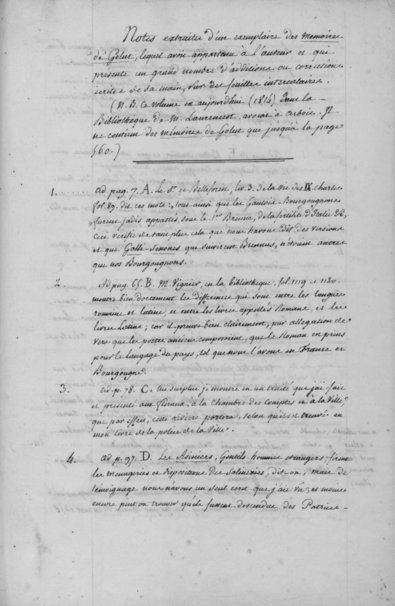 Notes extraites d'un exemplaire des Memoires
de Golut, lequel avoit appartenu à l'auteur et qui
presente un grand nombre d'additions ou corrections
ecrites de sa main, sur des feuilles intercalaires.
(N.B. Ce volume est aujourd'hui (1814) dans la
Bibliotheque de M. avocat à Arbois. Il
ne contient des mémoires de Golut que jusqu'à la page
560.)
1. Ad pag. 7. A. le Sr. de Belleforest, liv. 3. de la vie des IX Charles
fol. 89. dit ces mots: tous ainsi que les Gaulois Bourguignons
furent jadis appartés sous le 1er Brennus, de la fertilité d'Italie &c,
Ceci verifie de tant plus cela que nous avons dit des Senonois
et que Galli-Senones qui suivirent Brennus, n'étoient autres
que nos Bourguignons.
2. Ad pag. 65. B. M. Vignier, en la bibliotheque, fol. 1119 et 1120.
montre bien doctement les differences qui sont entre les langues
romaine et latine, et entre les livres appellés Romans, et les
livres Latins; car il prouve bien clairement, par allegation de
vers que les poetes anciens composoient, que le Roman est prins
pour le langage du pays, tel que nous l'avons en France et
Bourgougne.
3. Ad p. 78. C. Au surplus je montre en un traité que j'ai fait
et presenté aux à la chambre des comptes et à la ville,
que par effet, cette riviere portera, selon qu'il est trouvé en
mon livre de la police de la ville.
4. Ad p. 97. D. Les Rentiers, Gentils hommes estrangers, firent
les menageries et dispositions des Salineries, dit-on, mais de
temoignage nous n'avons un seul corps que j'aie vu; et moins
encore peut on trouver qu'ils furent descendus des Patrices